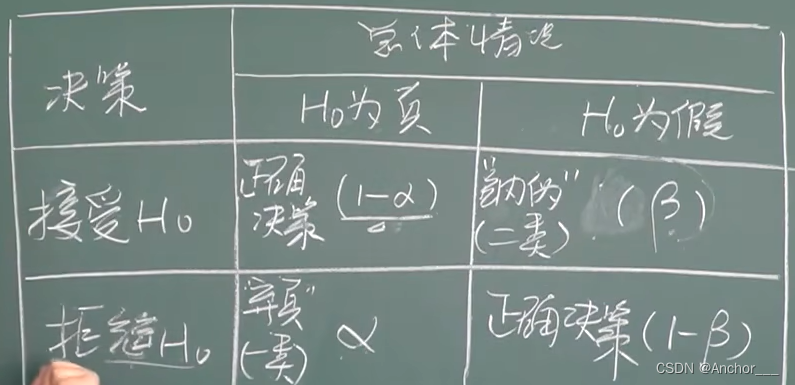 总体情况
决策
H₀为真
H₀为假
接受H₀
正确
决策 (1-α)
"纳伪"
(二类) (β)
拒绝H₀
"弃真"
(一类) α
正确决策(1-β)
CSDN @Anchor___